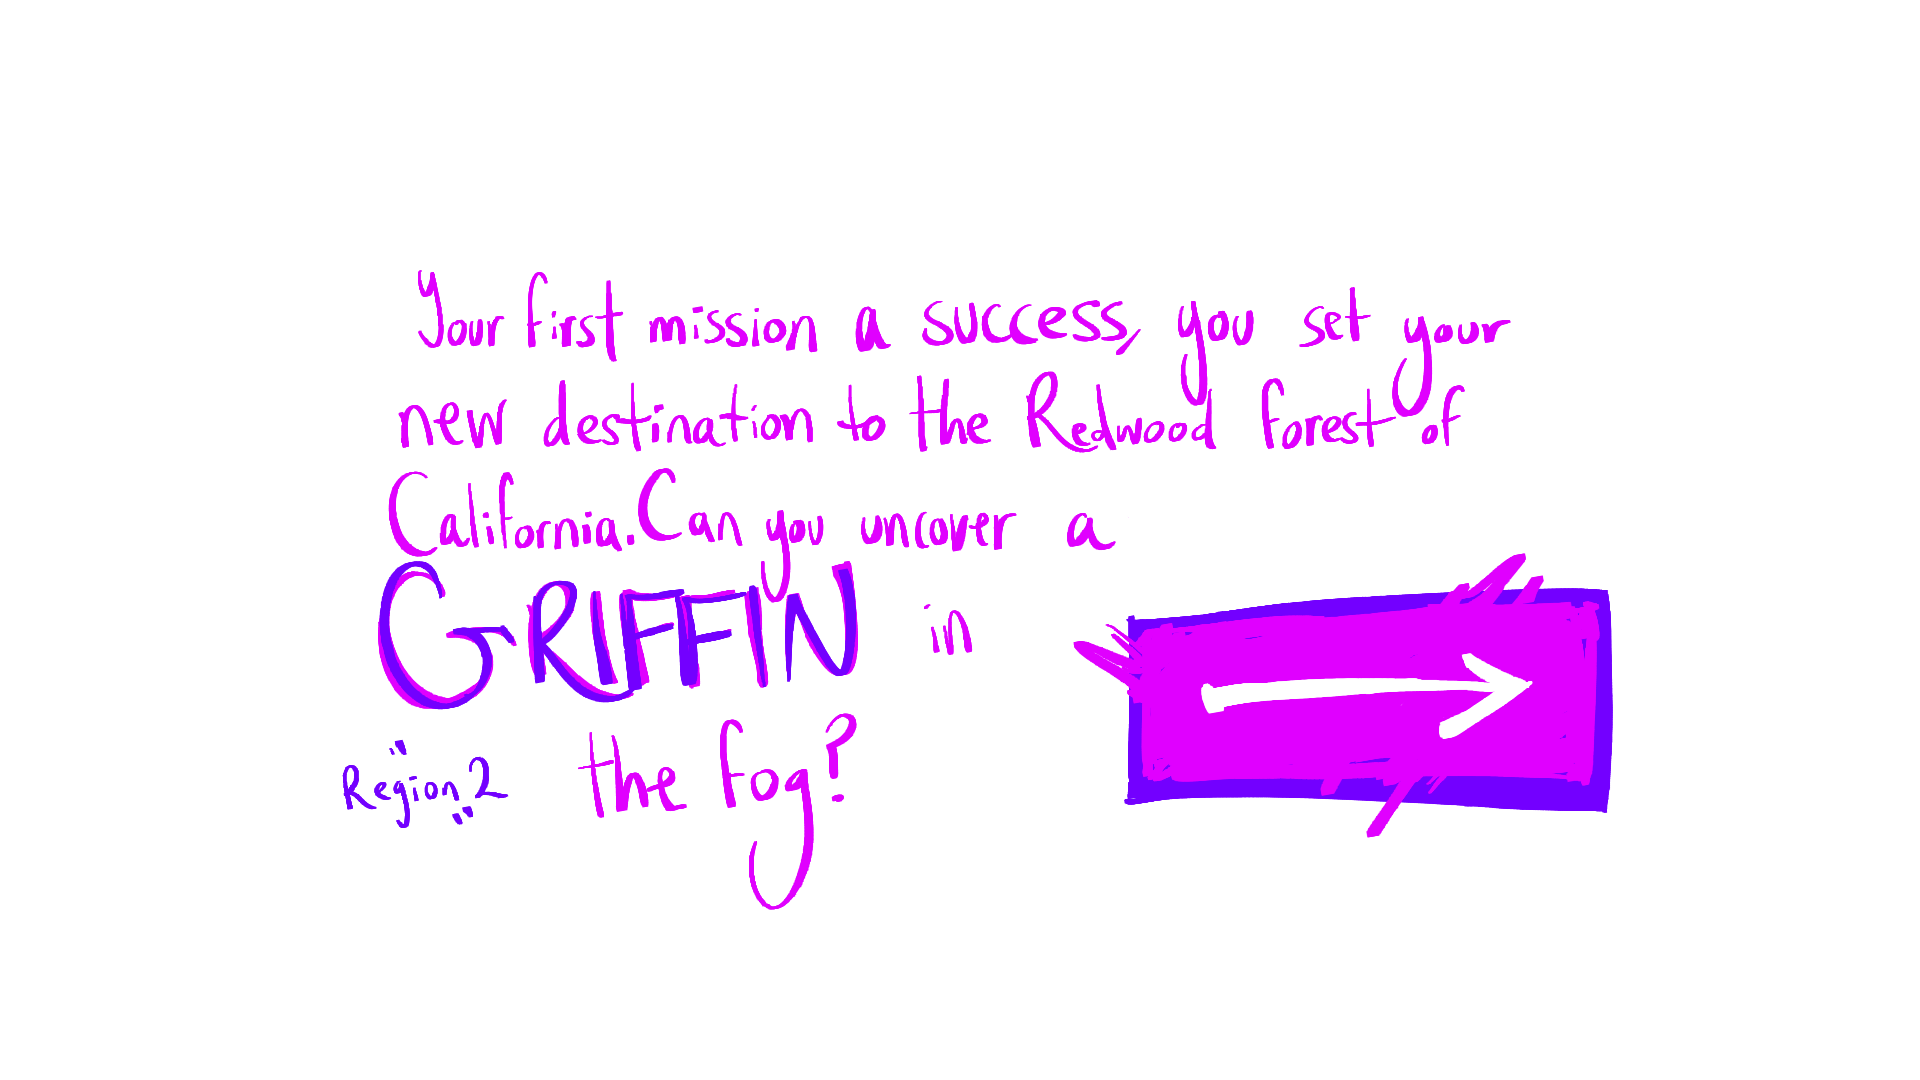 Your first mission a success, you set your
new destination to the Redwood forest of
California. Can you uncover a
GRIFFIN in
the fog?
"Region 2"